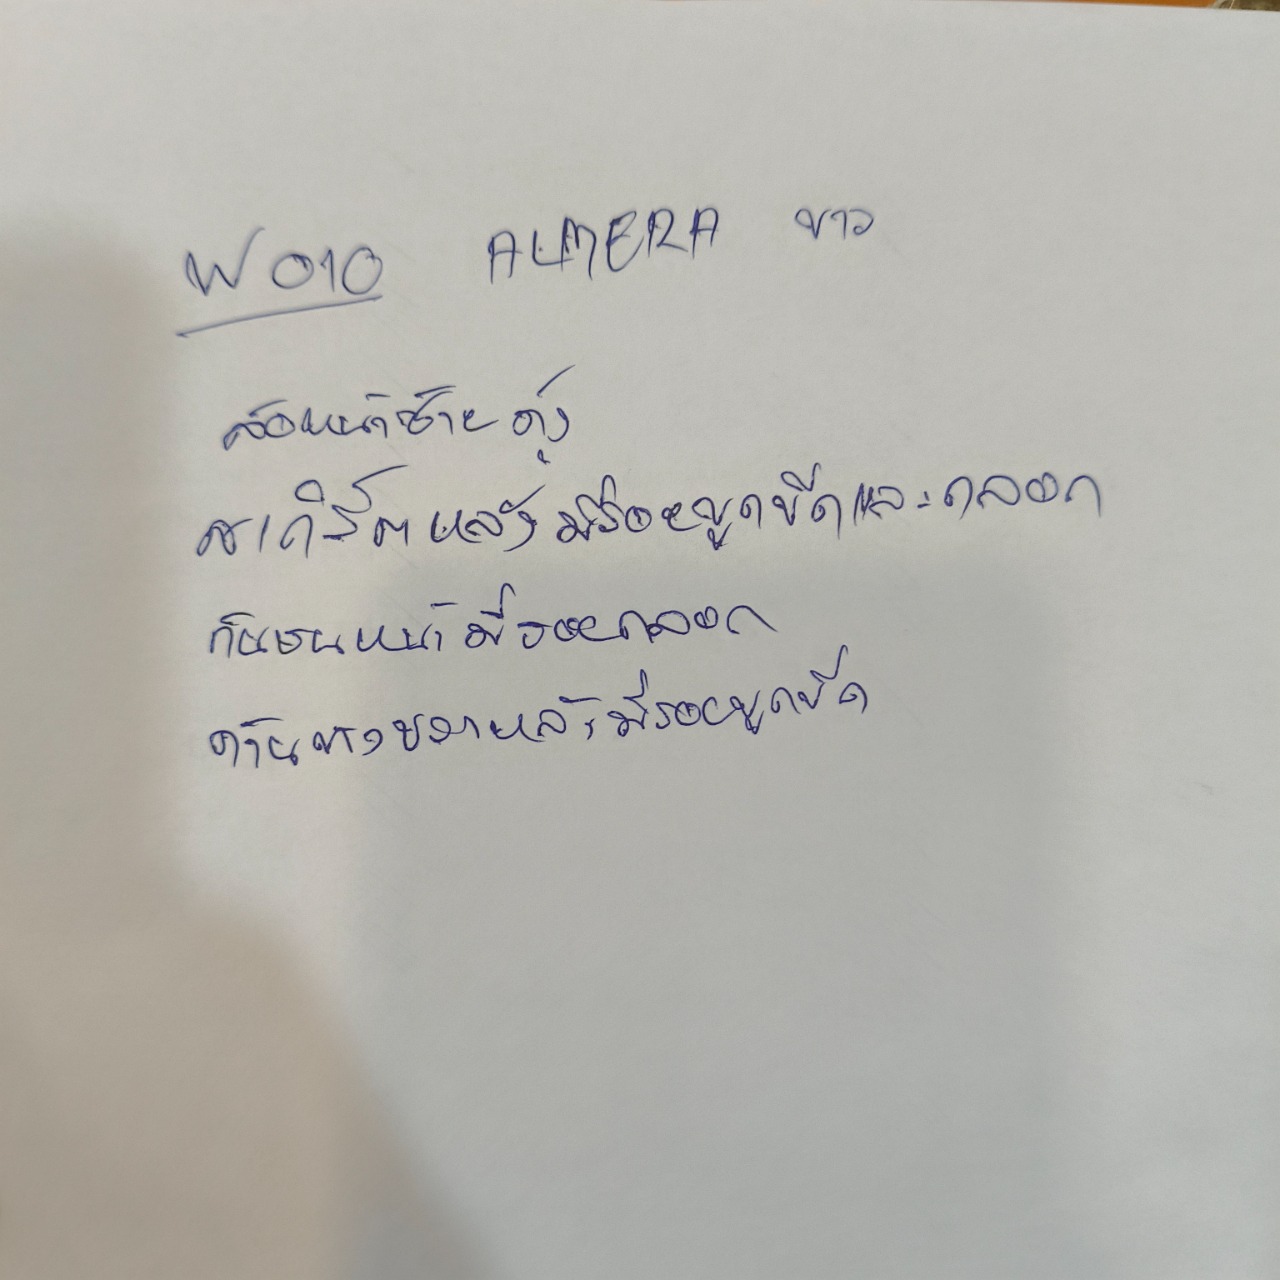 W010 ALMERA ขาว
ล้อหน้าซ้าย ดุ้ง
สเกิร์ตหลัง มีรอยขูดขีดและถลอก
กันชนหน้า มีรอยถลอก
ด้านขวาหลังมีรอยขูดขีด